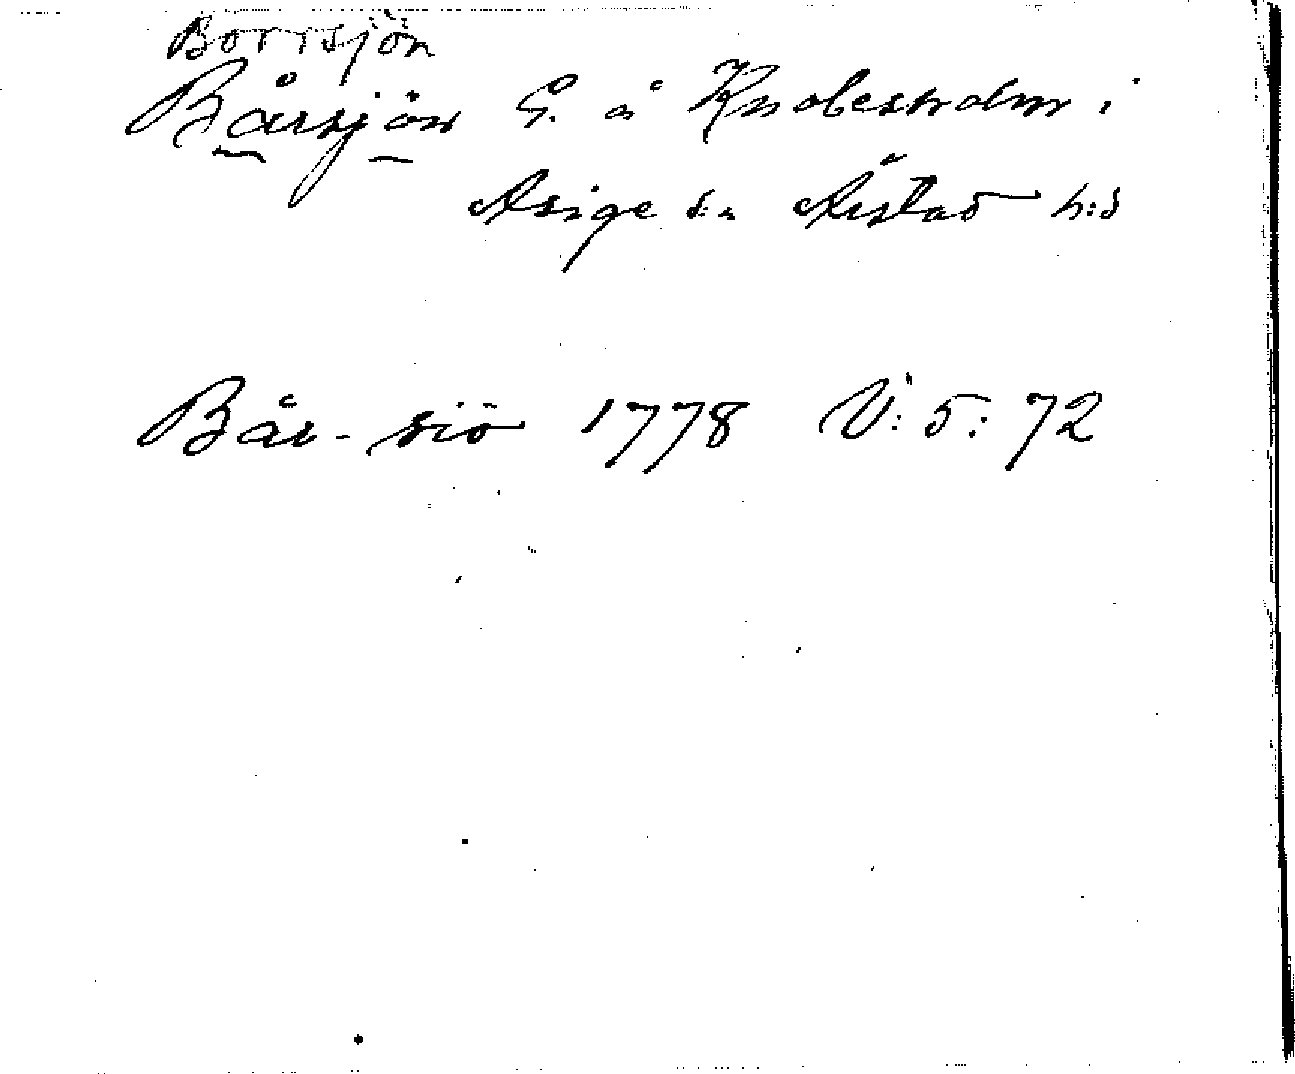 Borrsjön
Bårsjön G. å Knobesholm i
Asige s:n Årstad h:d
Bår-siö 1778 V: 5: 72